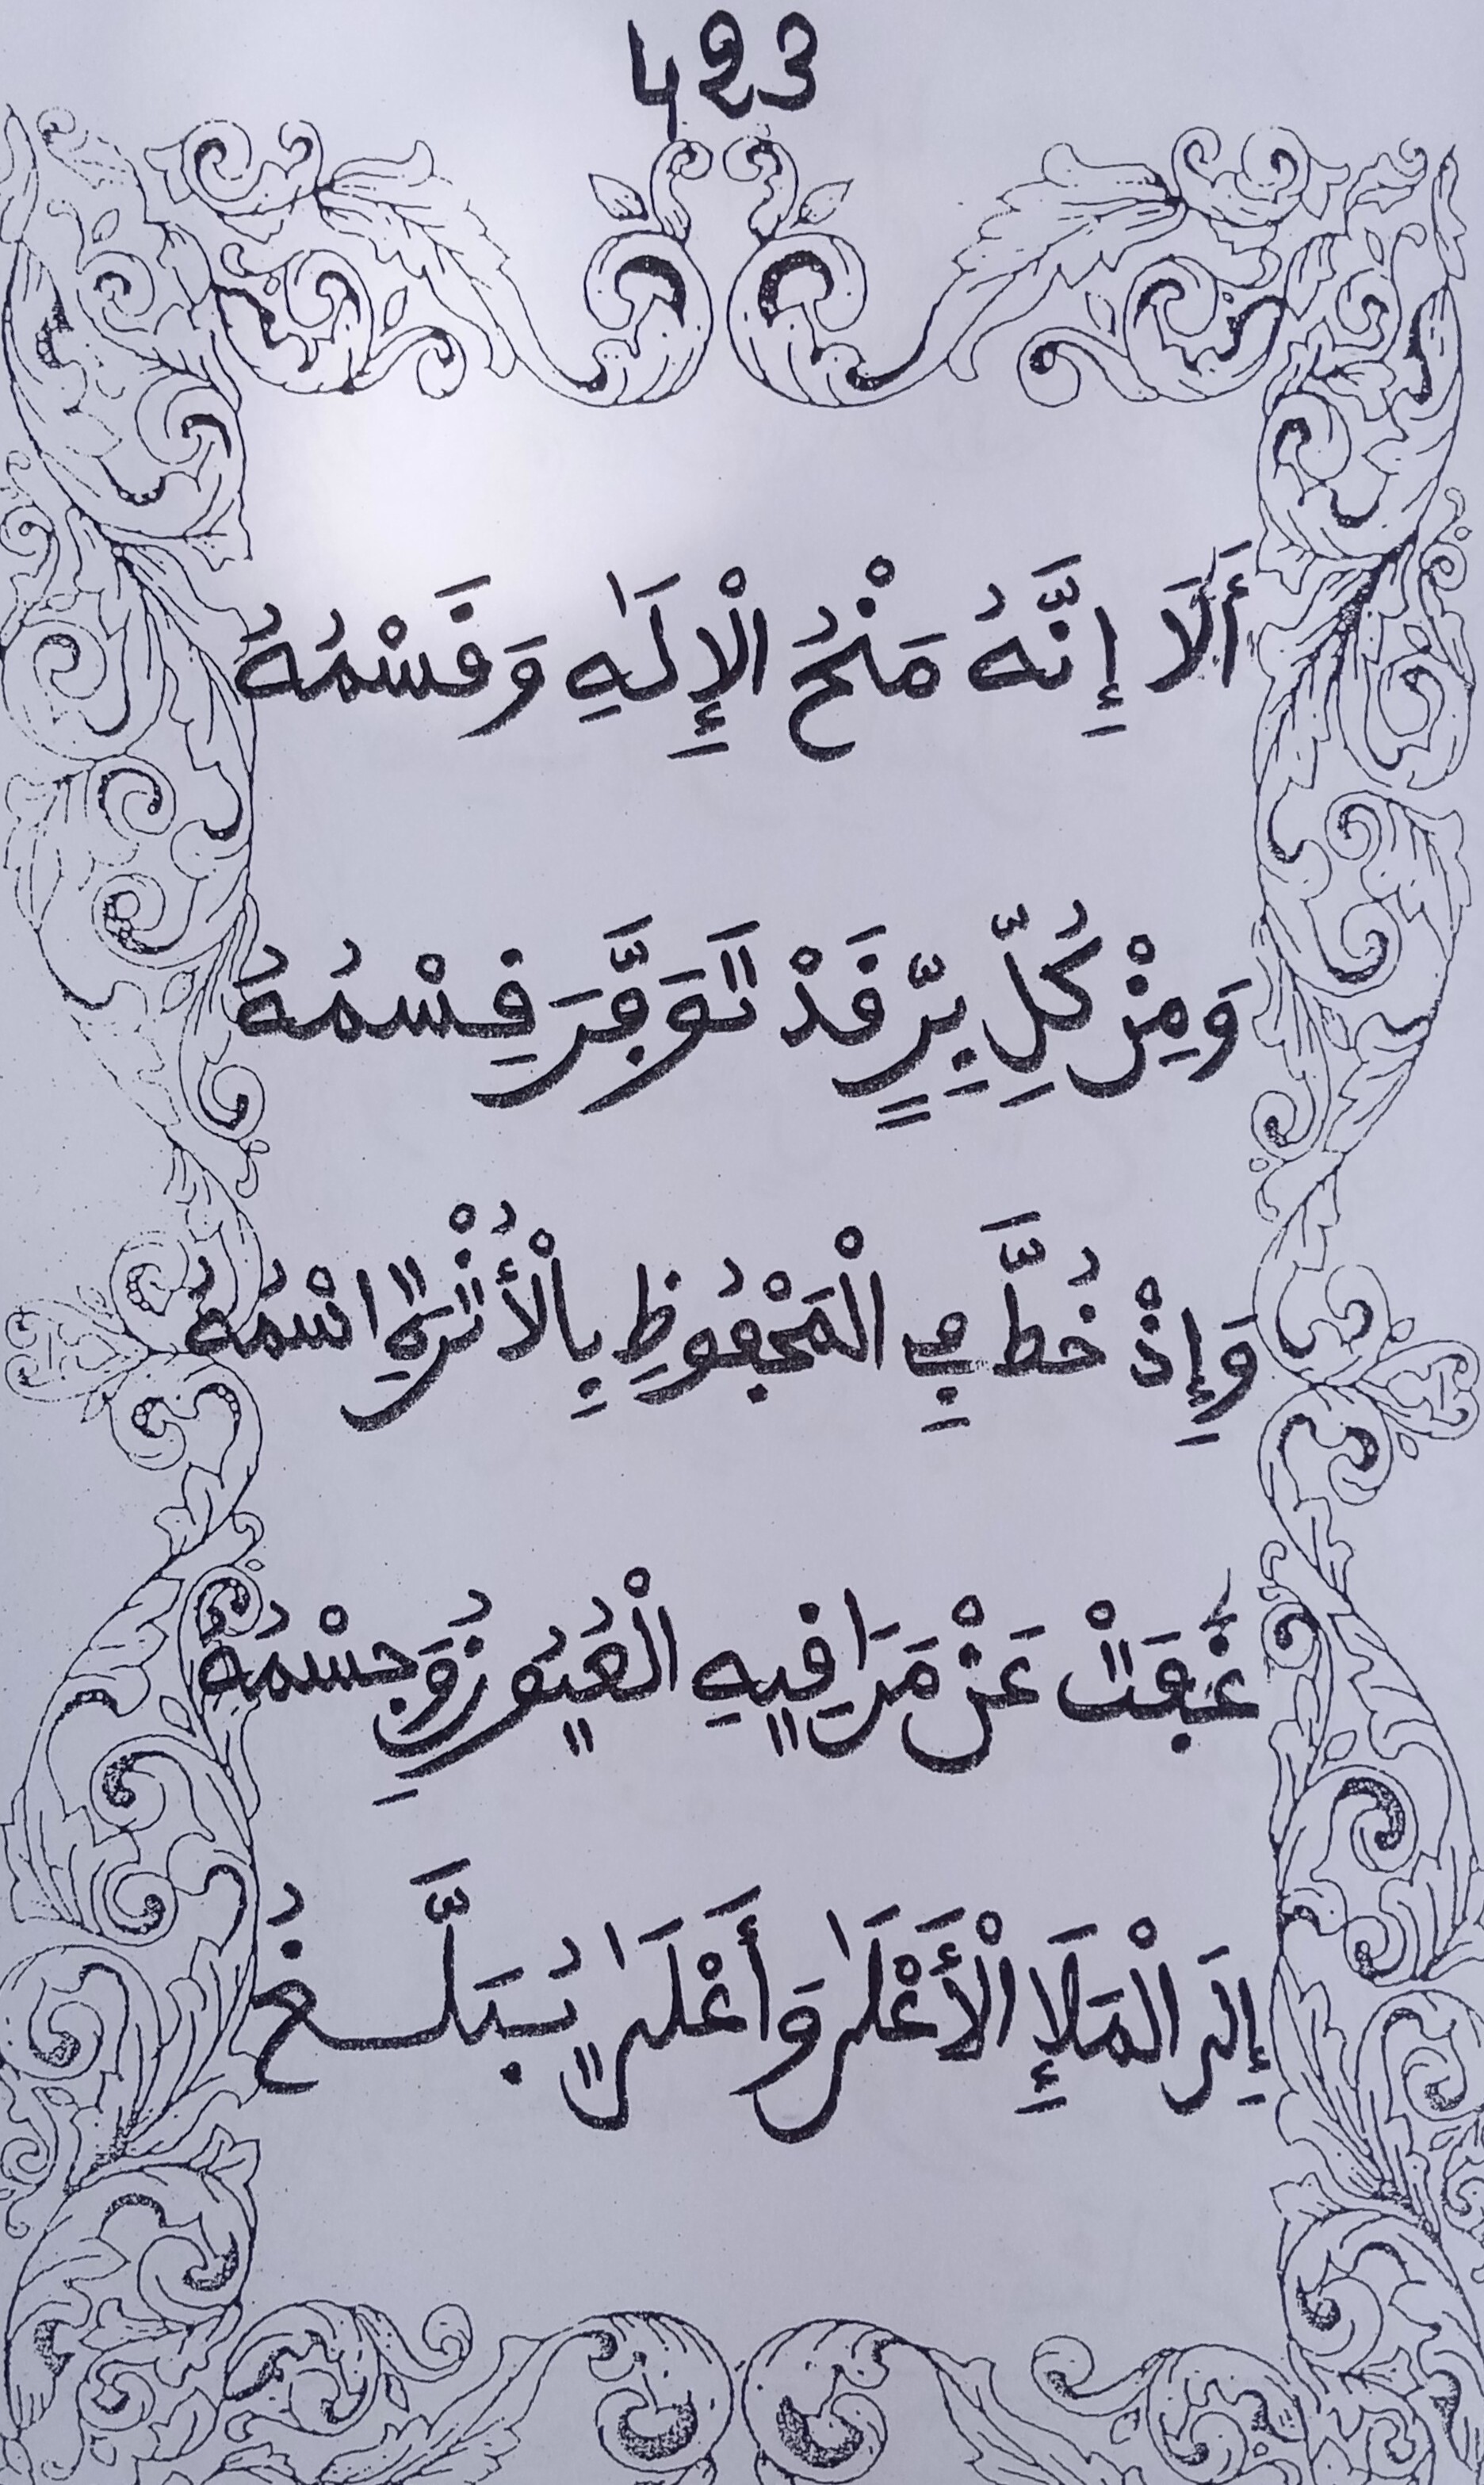 423
أَلَا إِنَّهُ مَنْحُ الْإِلَٰهِ وَقَسْمُهُ
وَمِنْ كُلِّ بِرٍّ قَدْ تَوَفَّرَ قِسْمُهُ
وَإِذْ خُطَّ فِي الْمَحْفُوظِ اسْمُهُ
غَفَتْ عَنْ مَرَاقِيهِ الْعُيُونُ وَجِسْمُهُ
إِلَى الْمَلَإِ الْأَعْلَىٰ وَأَعْلَىٰ يُبَلَّغُ